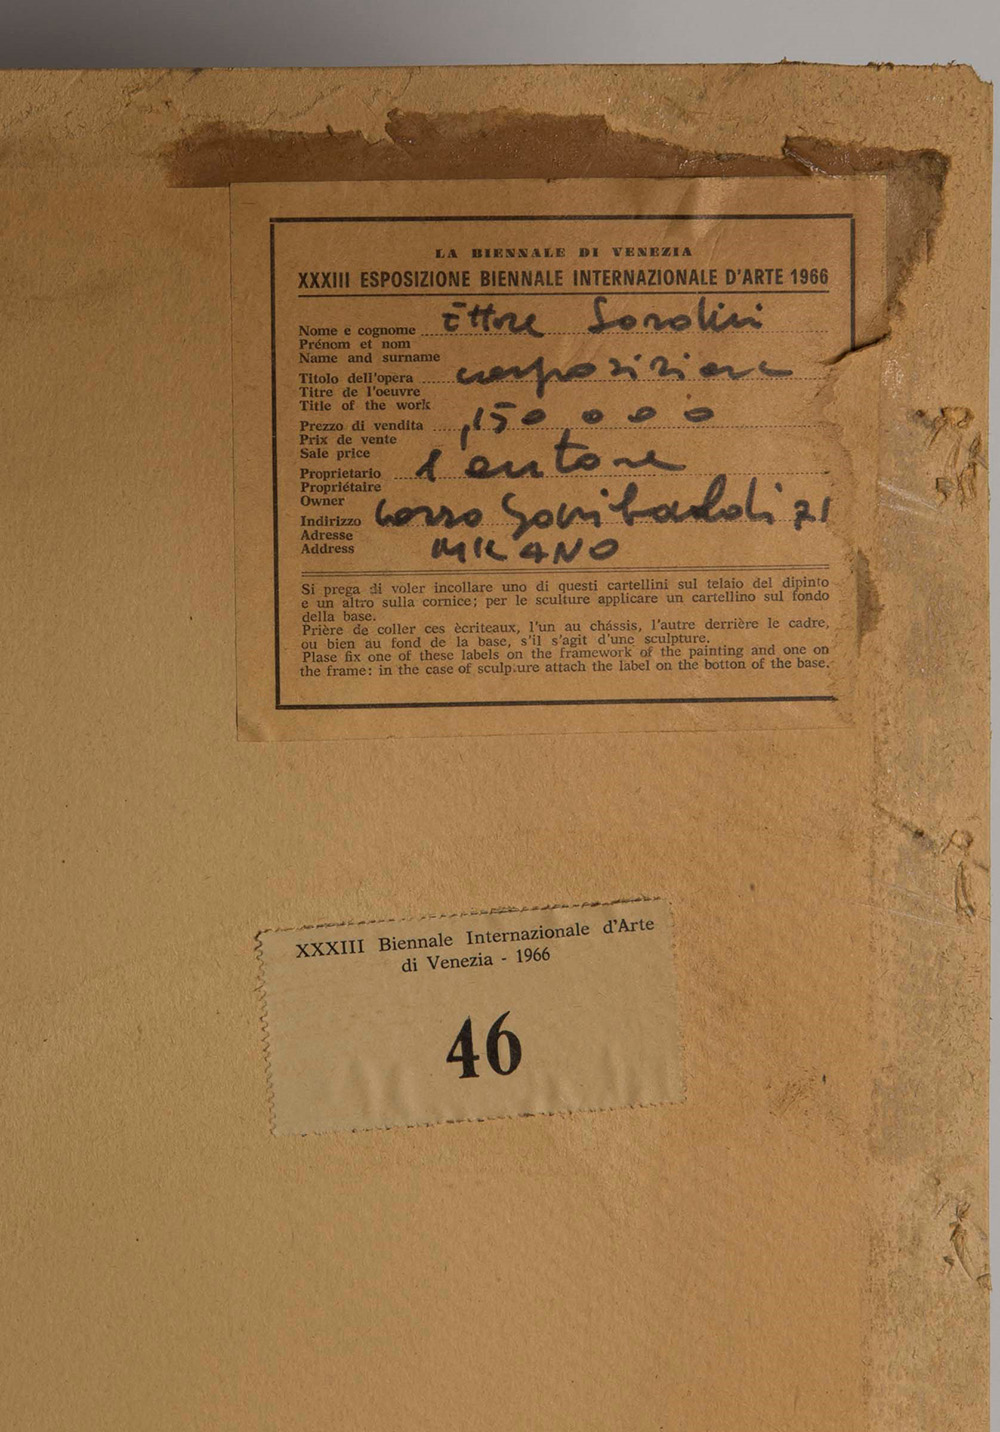 LA BIENNALE DI VENEZIA
XXXIII ESPOSIZIONE BIENNALE INTERNAZIONALE D'ARTE 1966
Nome e cognome Ettore Sordini
Prénom et nom
Name and surname
Titolo dell'opera composizione
Titre de l'oeuvre
Title of the work
Prezzo di vendita 150.000
Prix de vente
Sale price
Proprietario l'autore
Propriétaire
Owner
Indirizzo corso Garibaldi 71
Adresse
Address MILANO
Si prega di voler incollare uno di questi cartellini sul telaio del dipinto
e un altro sulla cornice; per le sculture applicare un cartellino sul fondo
della base.
Prière de coller ces ècriteaux, l'un au châssis, l'autre derrière le cadre,
ou bien au fond de la base, s'il s'agit d'une sculpture.
Plase fix one of these labels on the framework of the painting and one on
the frame: in the case of sculpture attach the label on the botton of the base.
XXXIII Biennale Internazionale d'Arte
di Venezia - 1966
46